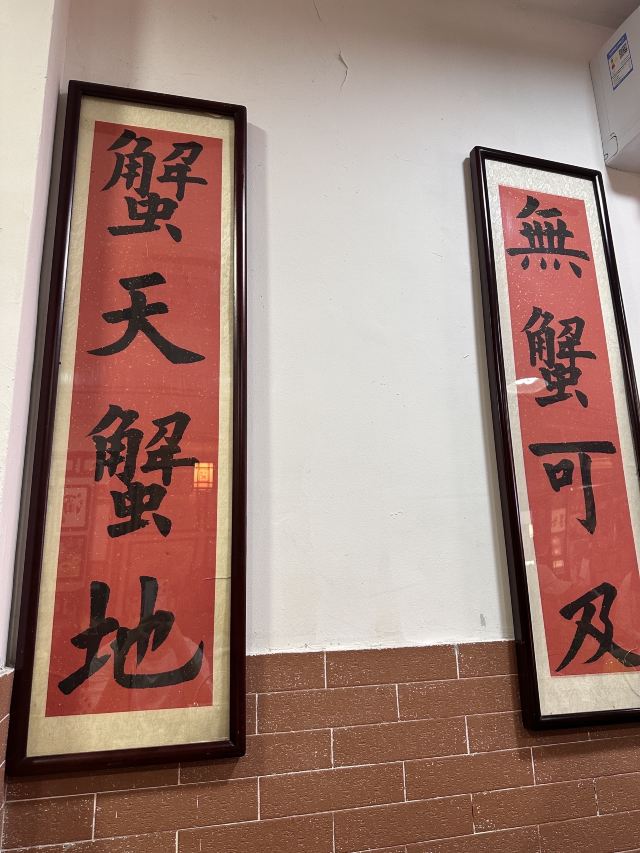 無蟹可及
蟹天蟹地